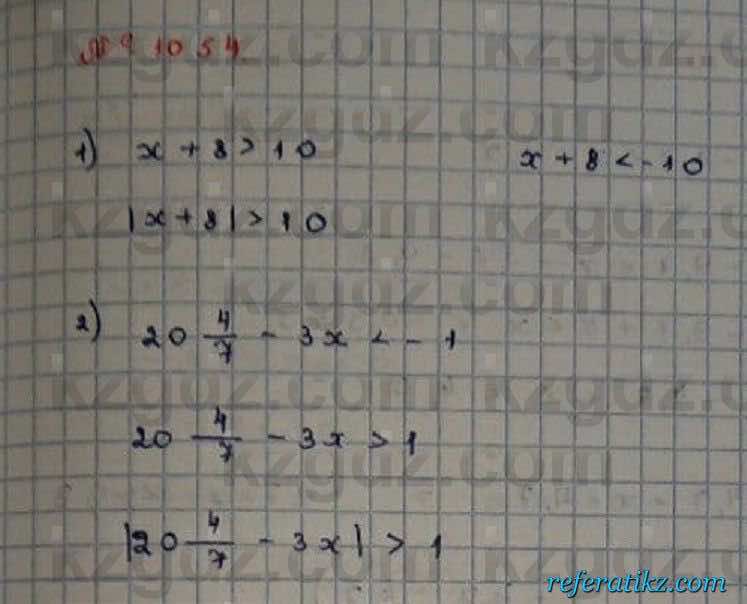 № 1054.
1) x + 8 > 10 x + 8 < -10
|x + 8| > 10
2) 20 4/7 - 3x < - 1
20 4/7 - 3x > 1
|20 4/7 - 3x| > 1
kzgdz.com
referatikz.com